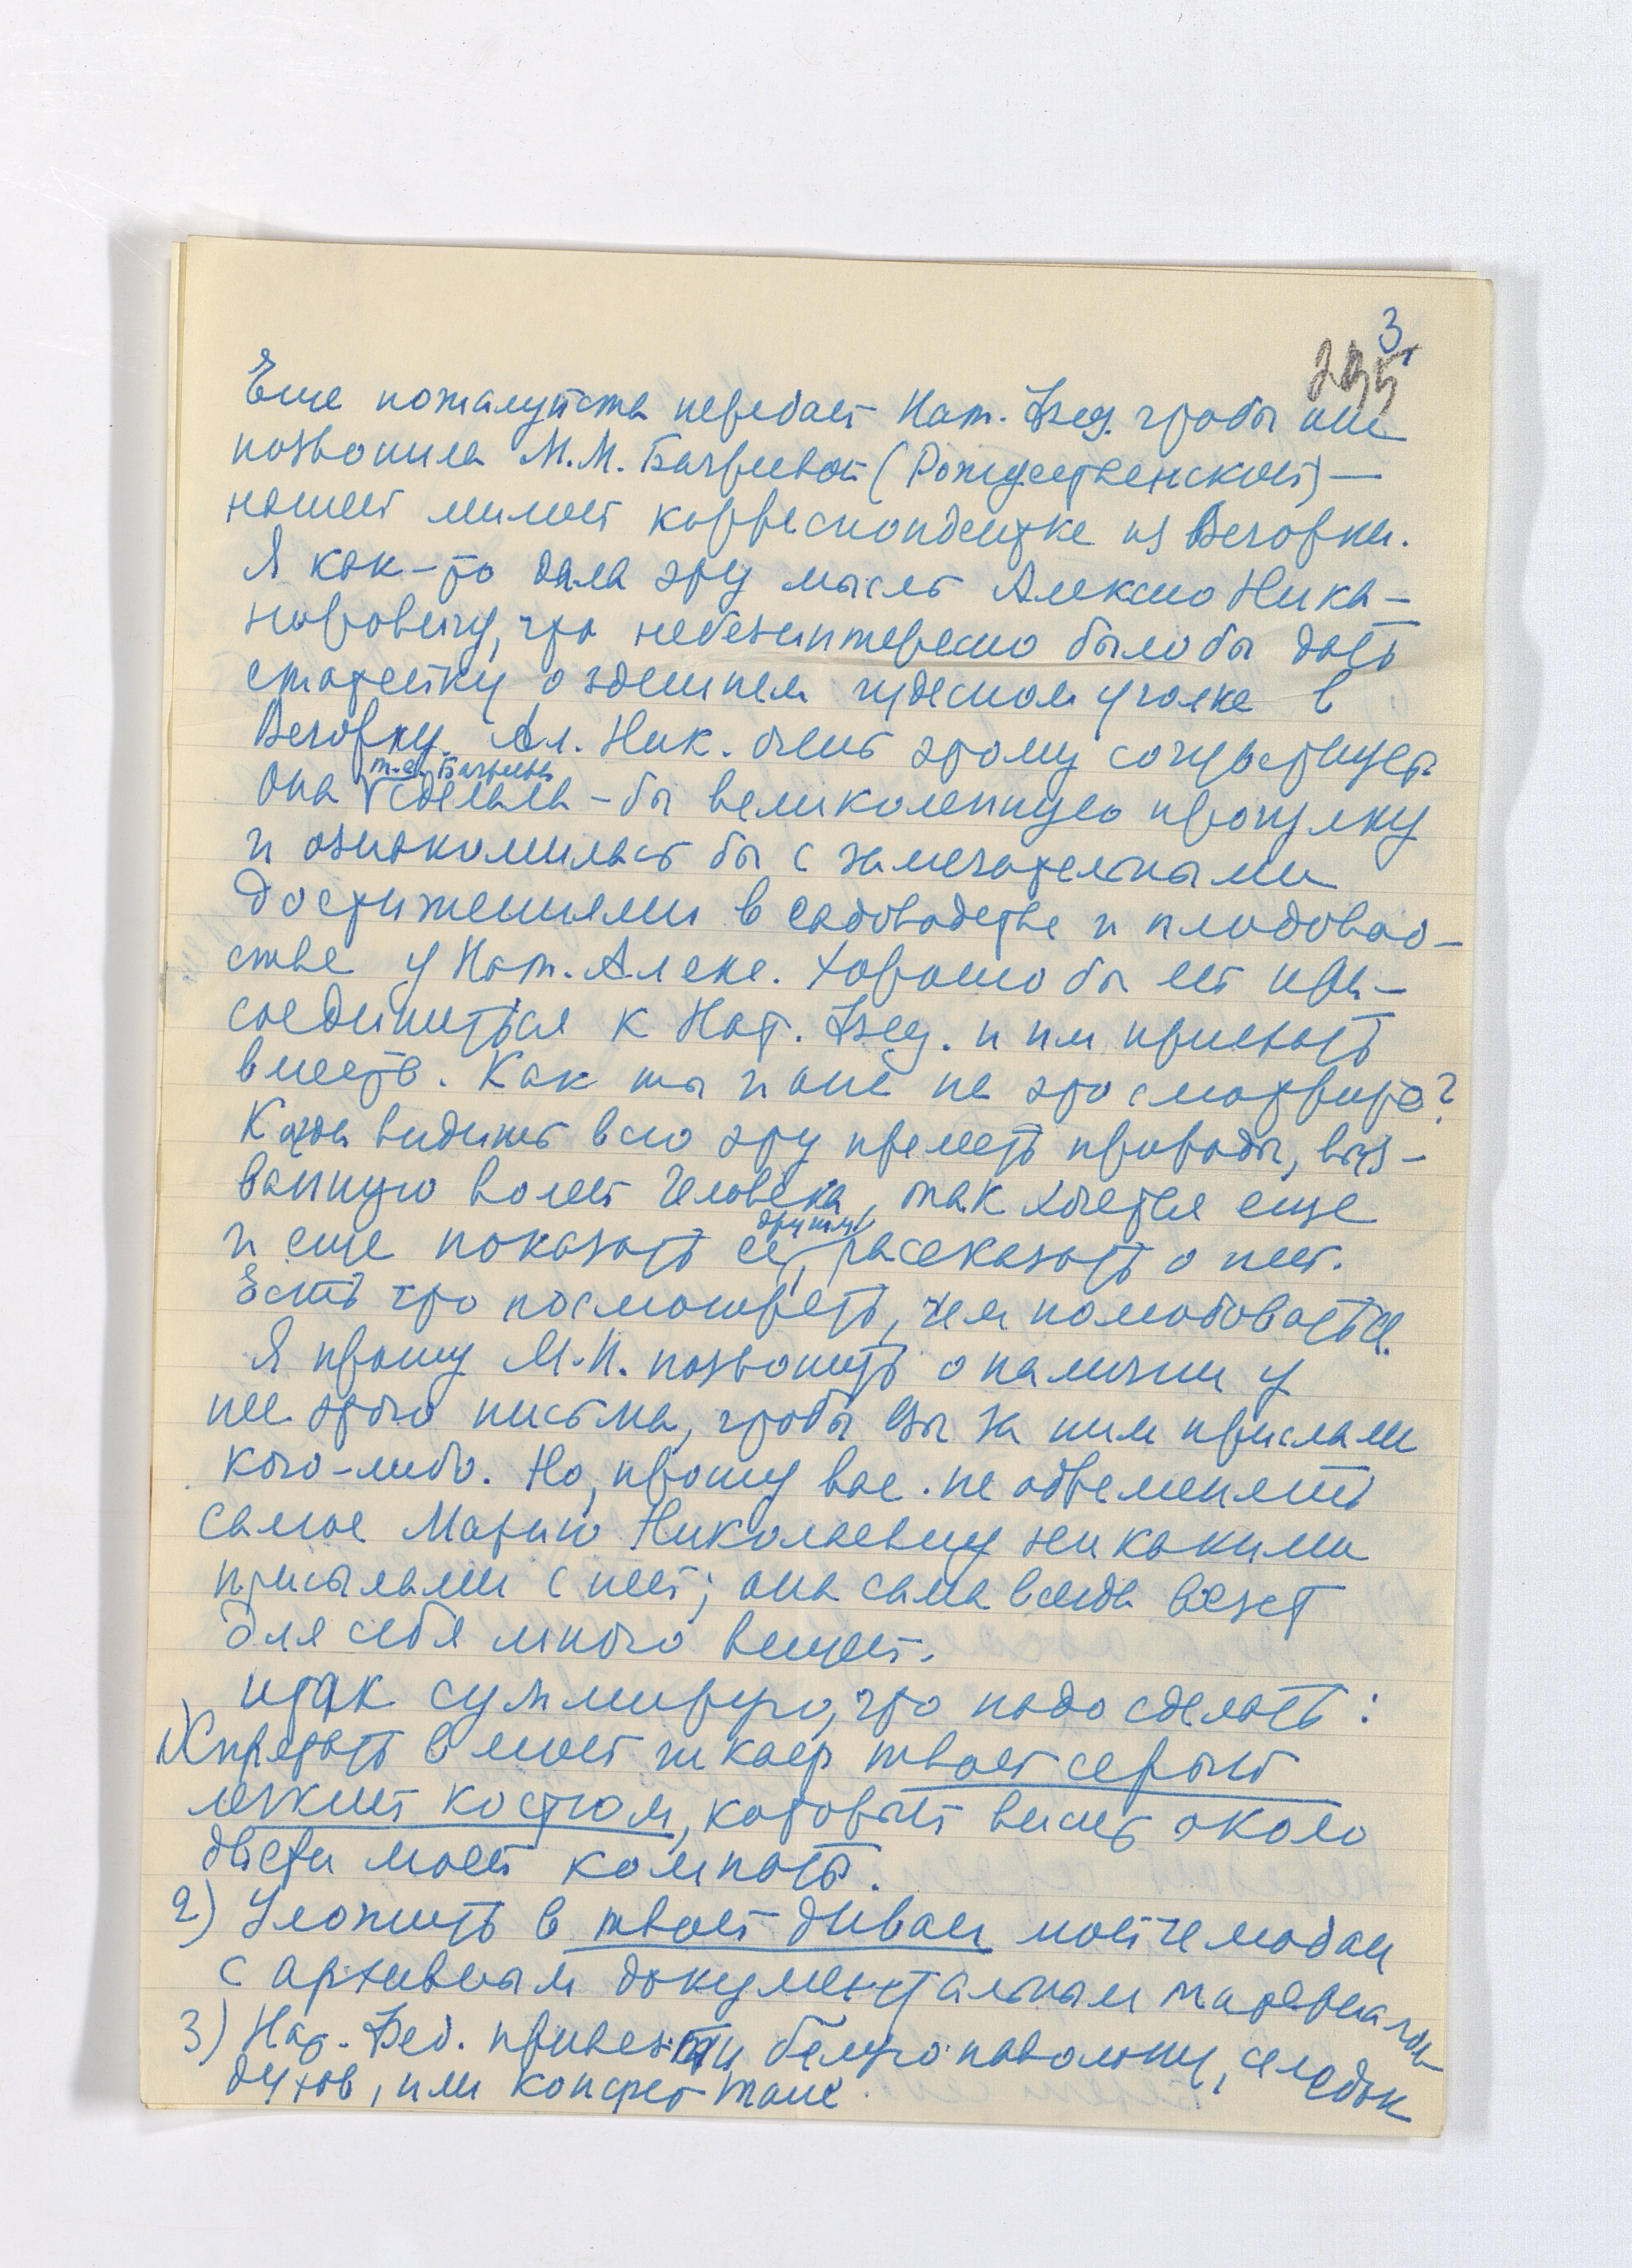 3
295
Еще пожалуйста передай Нат. Вед. чтобы она
позвонила М.М. Бачреевой (Рождественской) —
нашей милой корреспондентке из Вечорки.
Я как-то дала эту мысль Алексею Ника-
норовичу, что небезинтересно было бы дать
статейку о здешнем чудесном уголке в
Вечорку. Ал. Ник. очень этому сочувствует.
т.е.
Она сделала-бы великолепную прогулку
и ознакомилась бы с замечательными
достижениями в садоводстве и плодовод-
стве у Нат. Алекс. Хорошо бы ей при-
соединиться к Нат. Вед. и им приехать
вместе. Как ты и она на это смотрите?
Когда видишь всю эту прелесть природы, выз-
ванную волей человека, так хочется еще
другим
и еще показать ее, рассказать о ней.
Есть что посмотреть, чем полюбоваться.
Я прошу М.Н. позвонить о наличии у
нее этого письма, чтобы Вы за ним прислали
кого-либо. Но, прошу вас не обременять
самое Марию Николаевну никакими
присылами с ней; она сама всегда везет
для себя много вещей.
Итак суммирую, что надо сделать:
1) Спрятать в мой шкаф твой серый
легкий костюм, который висит около
двери моей комнаты.
2) Уложить в твой диван мой чемодан
с архивным документальным материалом
3) Нат. Вед. привезти белую наволочку, селедок
духов, или конфет таше